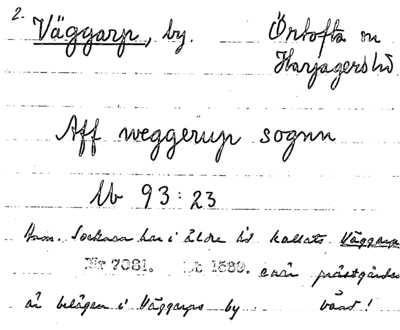 2.
Väggarp, by. Örtofta sn
Harjagers hd
Aff weggerup sognn
Mb 93:23
Anm. Socknen har i äldre tid kallats Väggarp
Nr 7081. 1589. enär prästgården
är belägen i Väggarps by